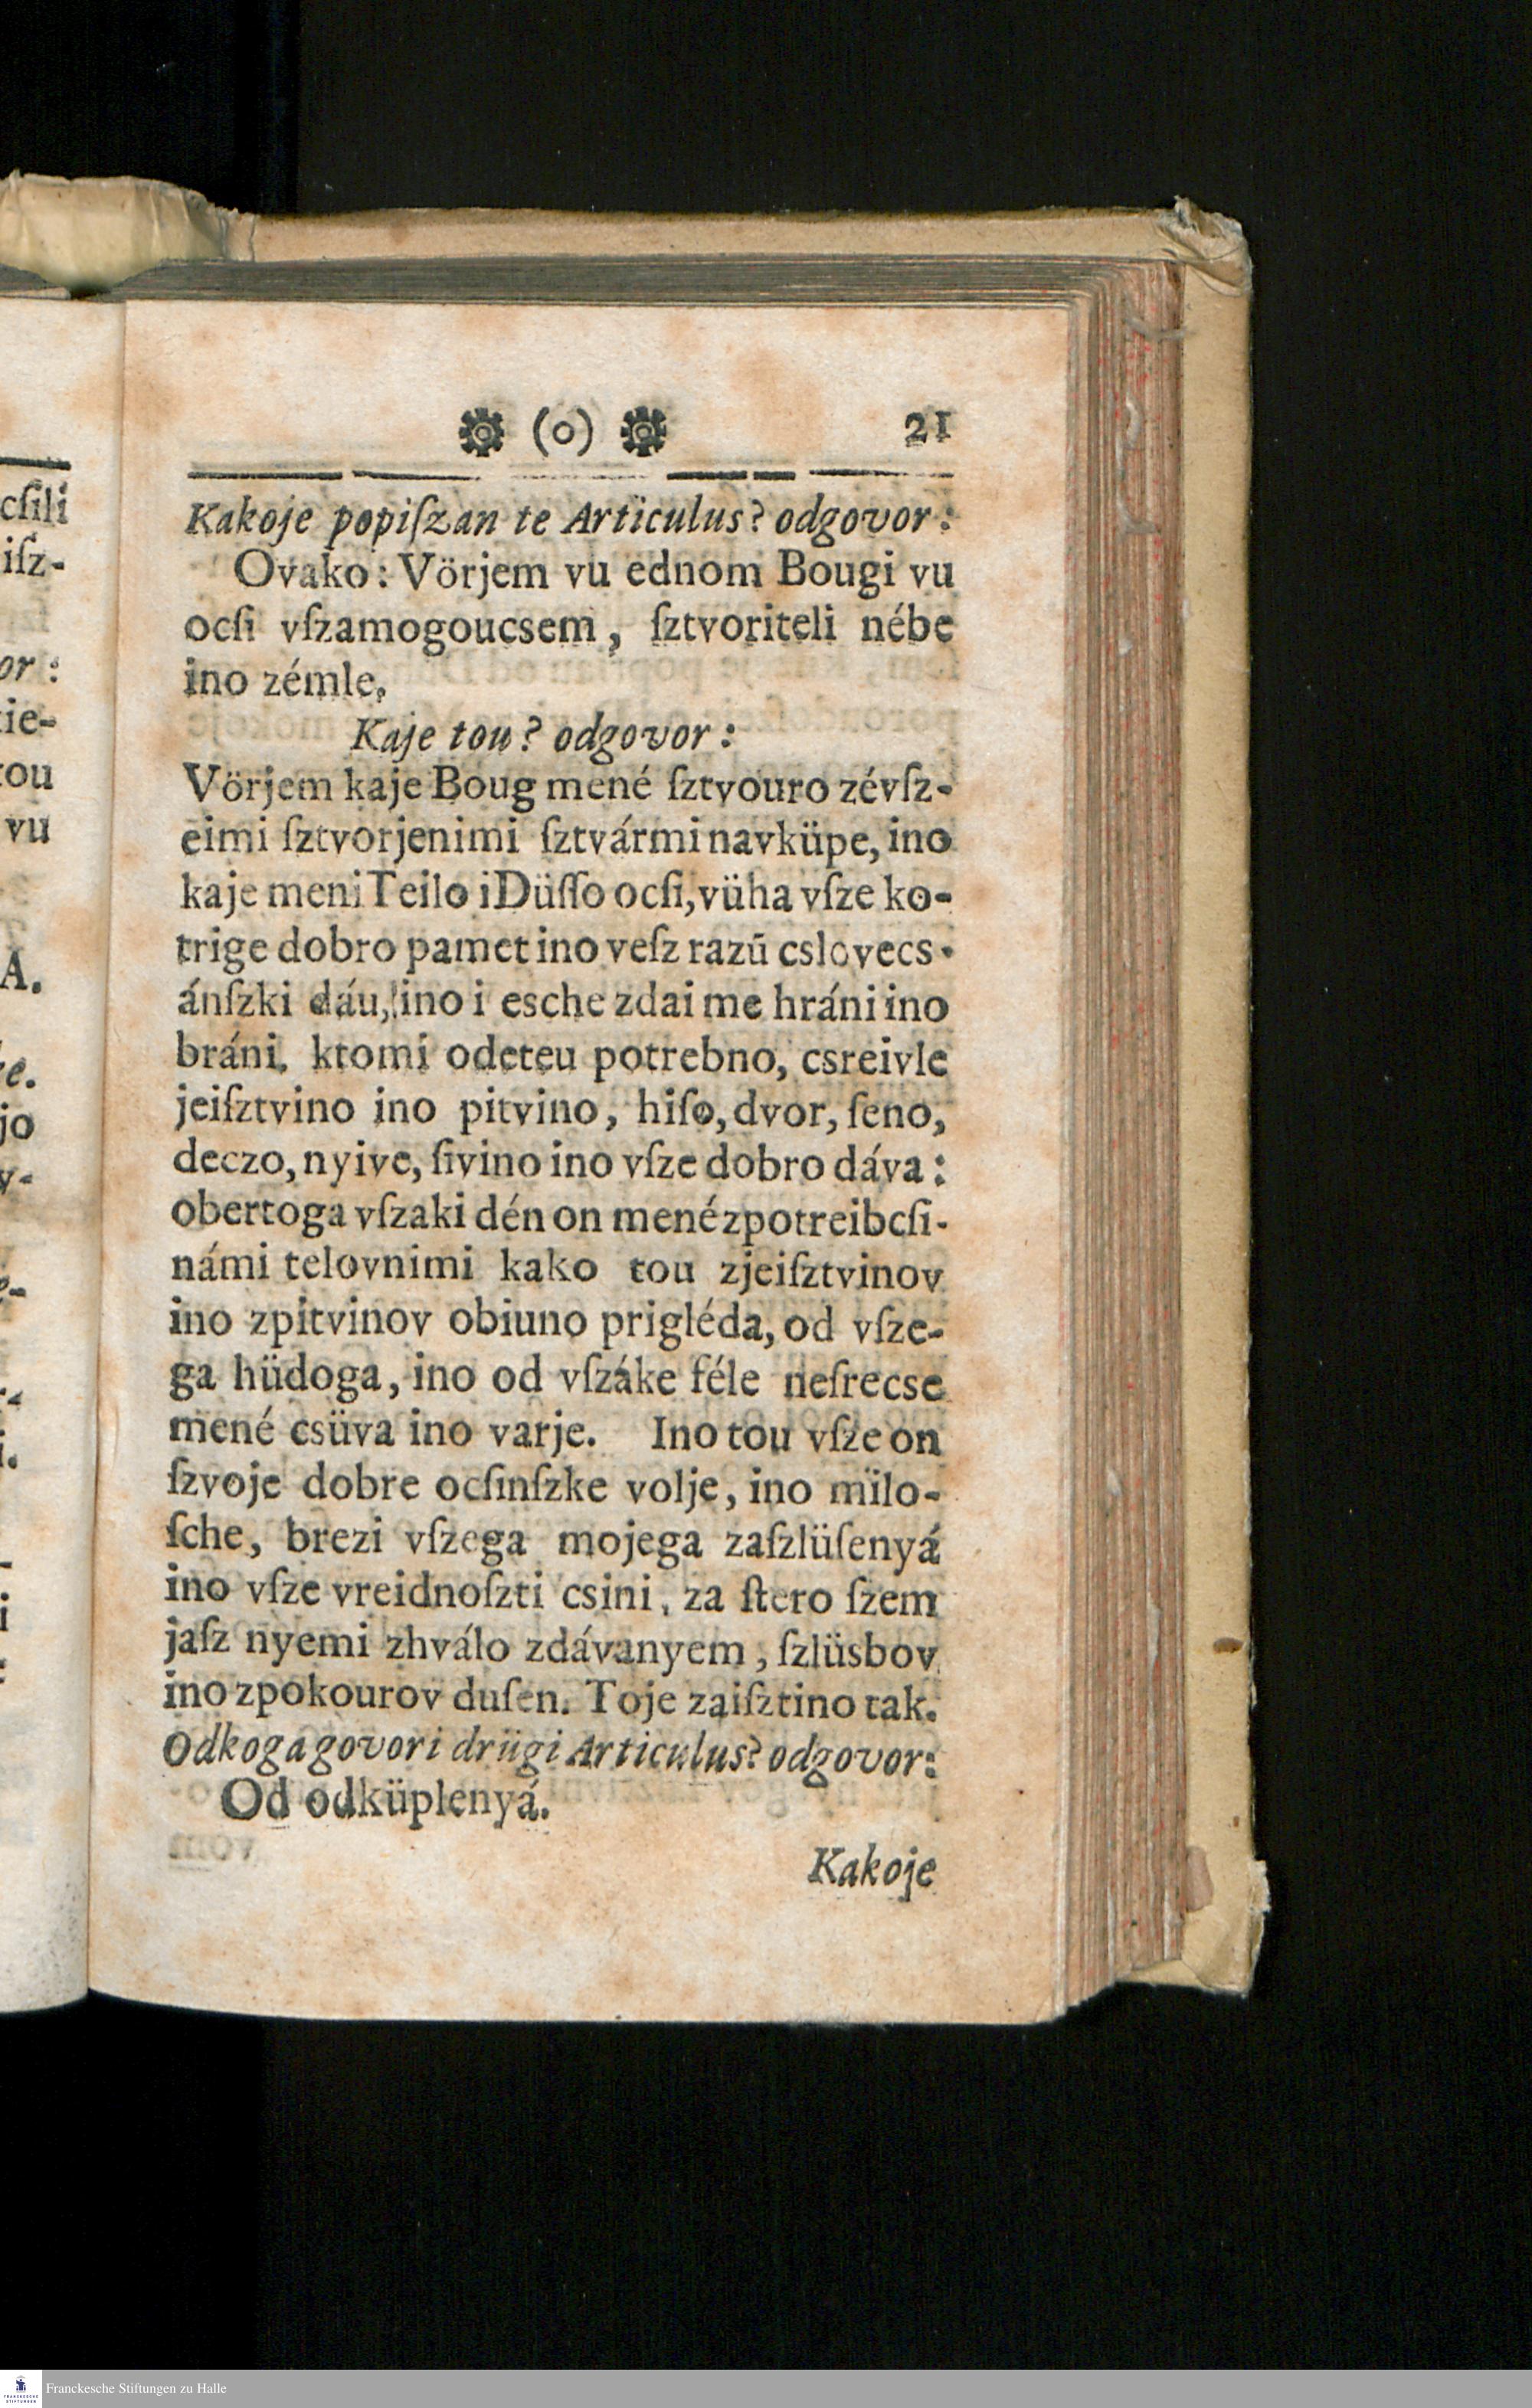 (o) 21
Kakoje popiſzan te Artïculus? odgovor:
Ovako: Vörjem vu ednom Bougi vu
ocſi vſzamogoucsem, ſztvoriteli nébe
ino zémle,
Kaje tou? odgovor:
Vörjem kaje Boug mené ſztvouro zévſz-
eimi ſztvorjenimi ſztvármi navküpe, ino
kaje meni Teilo i Düſſo ocſi, vüha vſze ko-
trige dobro pamet ino veſz razū cslovecs-
ánſzki dáu, ino i esche zdai me hráni ino
bráni, ktomi odeteu potrebno, csreivle
jeiſztvino ino pitvino, hiſo, dvor, ſeno,
deczo, nyive, ſivino ino vſze dobro dáva:
obertoga vſzaki dén on mené zpotreibcſi-
námi telovnimi kako tou zjeiſztvinov
ino zpitvinov obiuno prigléda, od vſze-
ga hüdoga, ino od vſzáke féle neſrecse
mené csüva ino varje. Ino tou vſze on
ſzvoje dobre ocſinſzke volje, ino mïlo-
ſche, brezi vſzega mojega zaſzlüſenyá
ino vſze vreidnoſzti csini, za ſtero ſzem
jaſz nyemi zhválo zdávanyem, ſzlüsbov
ino zpokourov duſen. Toje zaiſztino tak.
Odkoga govori drügi Articulus? odgovor:
Od odküplenyá.
Kakoje
cſili
iſz-
or:
tie-
tou
vu
A.
e.
jo
v-
e-
i.
i
Franckesche Stiftungen zu Halle